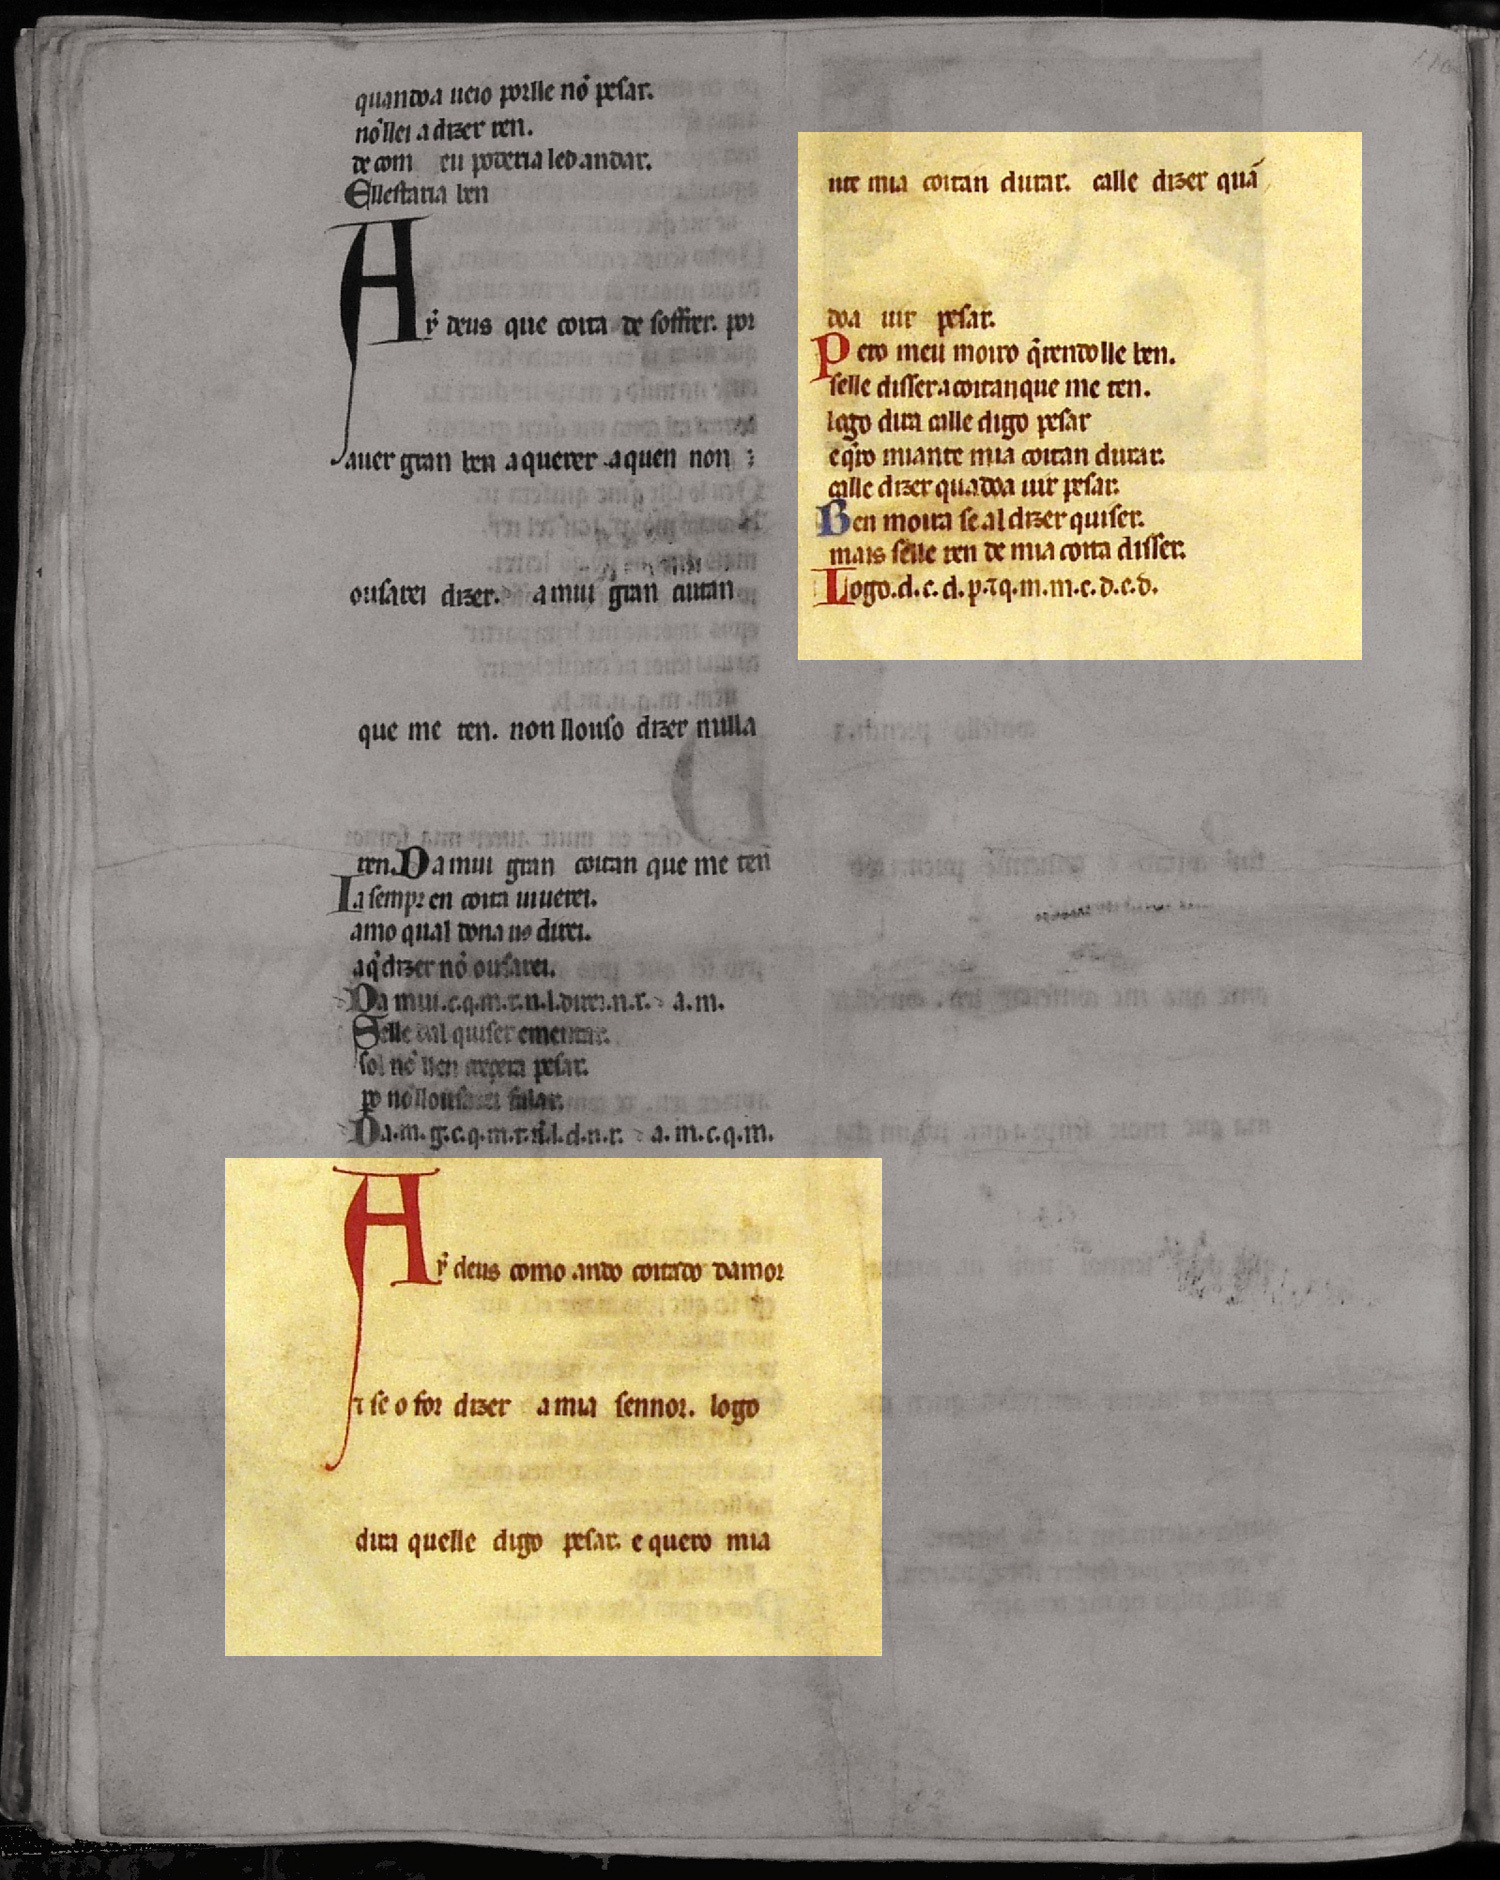 quandoa ueio porlle nõ pesar.
nõllei a dizer ren.
de com eu poderia led andar.
Ellestaria ben
Aẏ deus que coita de soffrer. por
auer gran ben a querer a quen non
ousarei dizer. a mui gran coitan
que me ten. non llouso dizer nulla
ren. Da mui gran coitan que me ten
Ia sempr en coita uiuerei.
amo qual dona nõ direi.
a q̃ dizer nõ ousarei.
Da mui.c.q.m.t.n.l.ouc.d.n.r. a.m.
Selle eal quiser ementar.
sol nõ llen pesar.
ꝑo nõllousarei falar.
Da.m.g.c.q.m.t.n.l.d.n.r. a.m.c.q.m.
Aẏ deus como ando coitado damor
⁊ se o for dizer a mia sennor. logo
dira quelle digo pesar. e quero mia
nte mia coitan durar. calle dizer quã
doa uir pesar.
Pero meu moiro q̃rendolle ben.
selle disser a coitan que me ten.
logo dira calle digo pesar
e q̃ro miante mia coitan durar.
calle dizer quãdoa uir pesar.
Ben moira se al dizer quiser.
mais selle ren de mia coita disser.
Logo.d.c.d.p.⁊q.m.m.c.d.c.d.